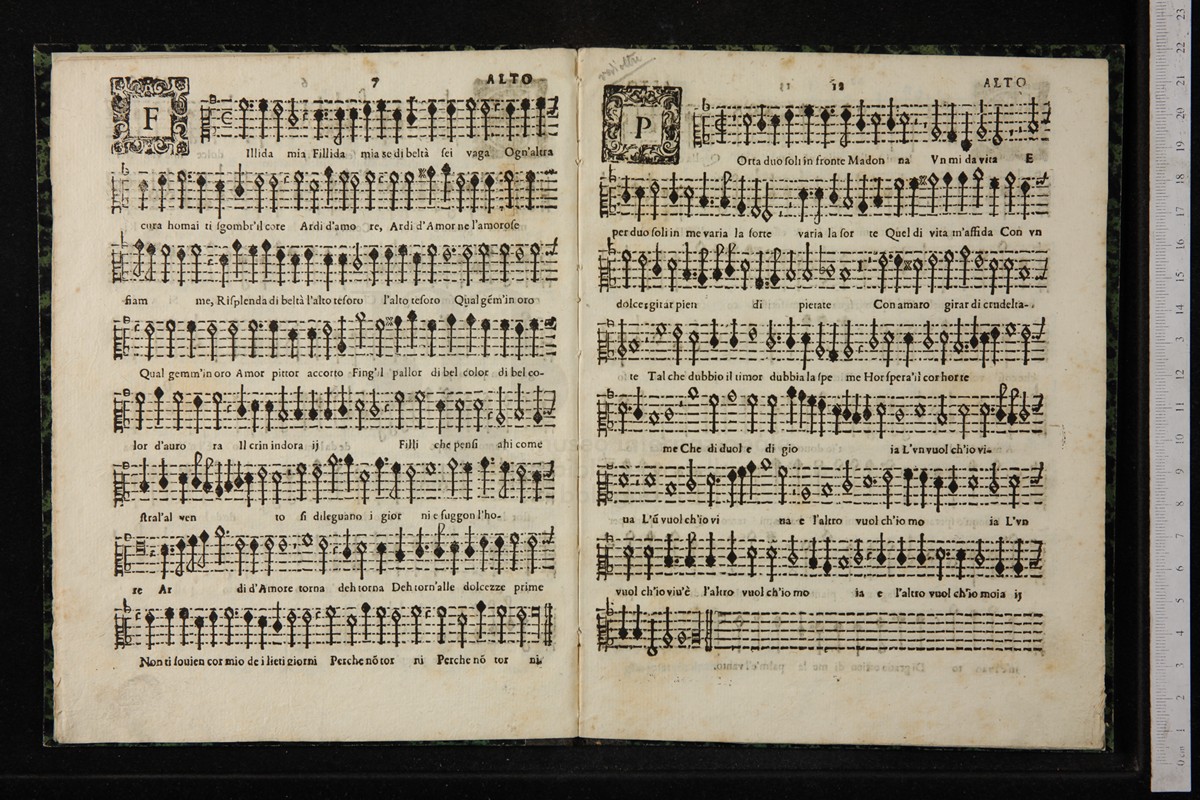 7 ALTO
F
Illida mia Fillida mia se di beltà sei vaga Ogn'altra
cura homai ti sgombr'il core Ardi d'amo re, Ardi d'Amor ne l'amorose
fiam me, Risplenda di beltà l'alto tesoro l'alto tesoro Qual gém'in oro
Qual gemm'in oro Amor pittor accorto Fing'il pallor di bel color di bel co-
lor d'auro ra Il crin indora ij Filli che pensi ahi come
stral'al ven to si dileguano i gior ni e fuggon l'ho-
re Ar di d'Amore torna deh torna Deh torn'alle dolcezze prime
Non ti souien cor mio de i lieti giorni Perche nõ tor ni Perche nõ tor ni.
12 ALTO
P
Orta duo soli in fronte Madon na Vn mi da vita E
per duo soli in me varia la sorte varia la sor te Quel di vita m'affida Con vn
dolce girar pien di pietate Con amaro girar di crudelta-
te Tal che dubbio il timor dubbia la spe me Hor spera'il cor hor te
me Che di duol e di gio ia L'vn vuol ch'io vi-
ua L'ũ vuol ch'io vi na e l'altro vuol ch'io mo ia L'vn
vuol ch'io viu'è l'altro vuol ch'io mo ia e l'altro vuol ch'io moia ij